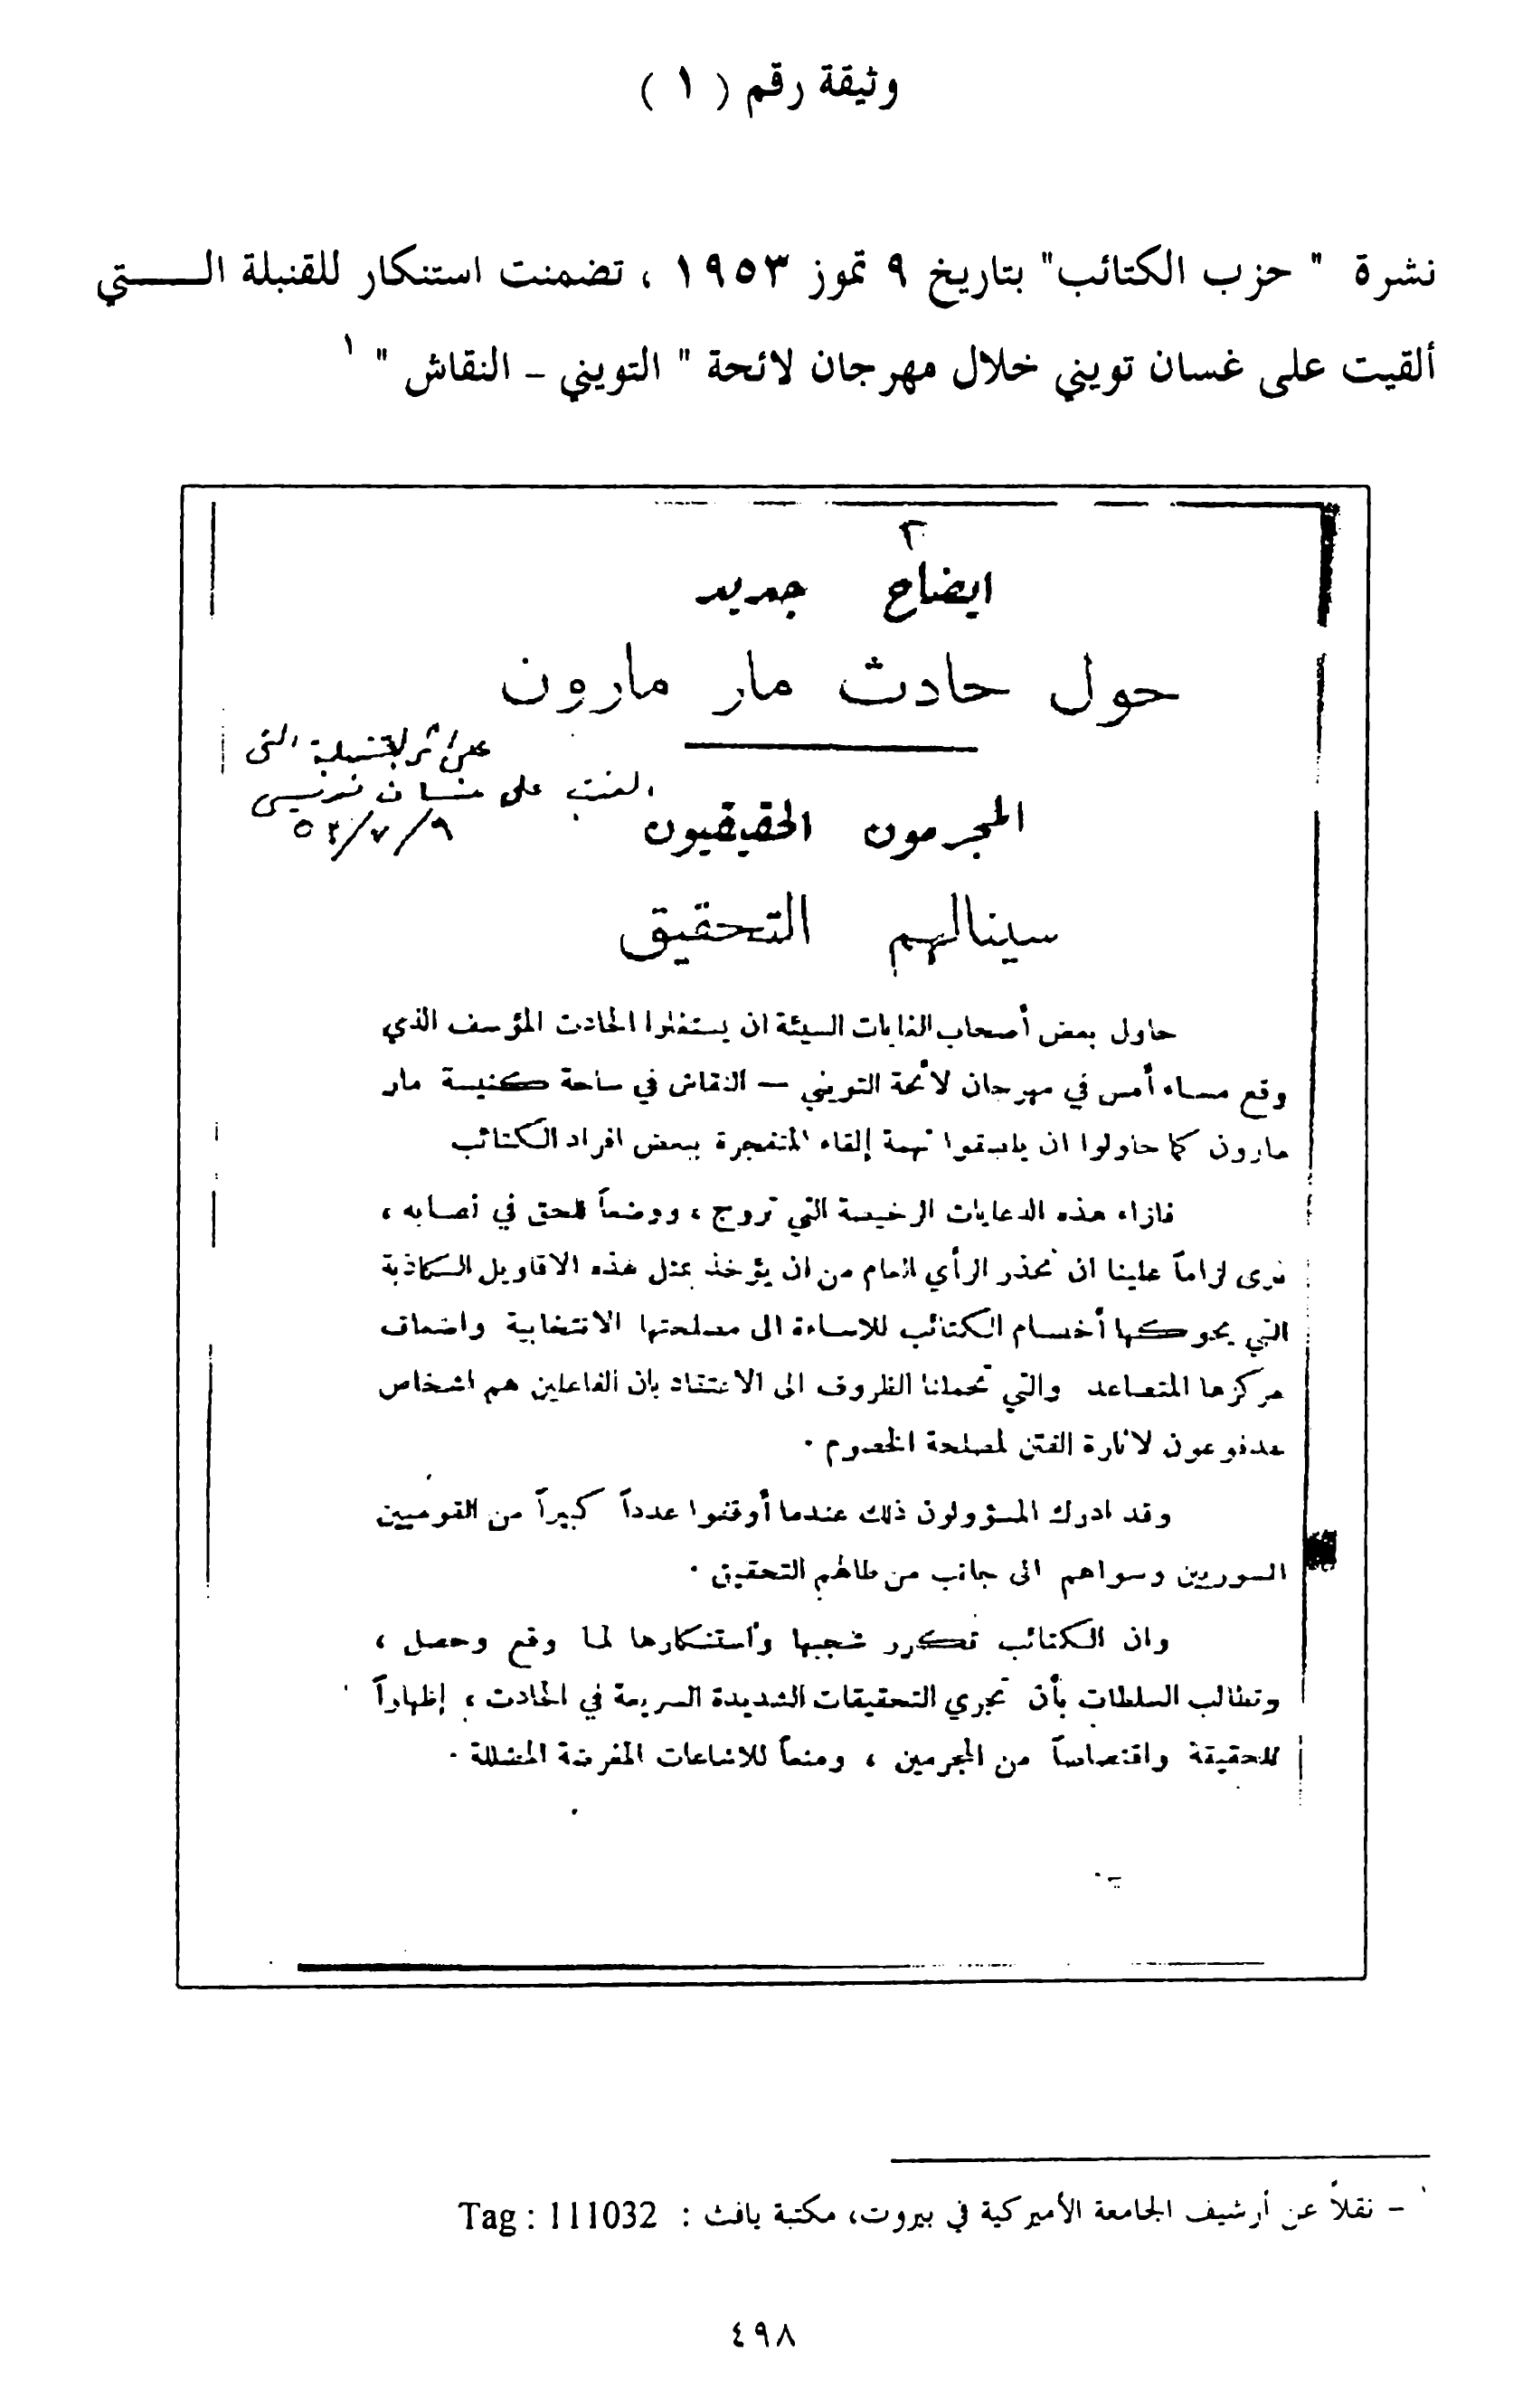 وثيقة رقم ( ١ )
نشرة " حزب الكتائب" بتاريخ ٩ تموز ١٩٥٣ ، تضمنت استنكار للقنبلة الـــــتي
ألقيت على غسان تويني خلال مهرجان لائحة " التويني - النقاش " ١
٢
ايضاح جديد
حول حادث مار مارون
على أثر القنبلة التي
القيت على غسان تويني
٩/٧/٥٣
المجرمون الحقيقيون
سينالهم التحقيق
حاول بعض أصحاب الغايات السيئة ان يستغلوا الحادث المؤسف الذي
وقع مساء أمس في مهرجان لائحة التويني — النقاش في ساحة كنيسة مار
مارون كما حاولوا ان يلصقوا تهمة إلقاء المتفجرة ببعض افراد الكتائب
فازاء هذه الدعايات الرخيصة التي تروج ، ووضعاً للحق في نصابه ،
نرى لزاماً علينا ان نحذر الرأي العام من ان يؤخذ بمثل هذه الاقاويل الكاذبة
التي يحوكها أخصام الكتائب للاساءة الى مصلحتها الانتخابية واضعاف
مركزها المتصاعد والتي تحملنا الظروف الى الاعتقاد بان الفاعلين هم اشخاص
مدفوعون لاثارة الفتن لمصلحة الخصوم ·
وقد ادرك المسؤولون ذلك عندما أوقفوا عدداً كبيراً من القوميين
السوريين وسواهم الى جانب من طالهم التحقيق ·
وان الكتائب تكرر شجبها وأستنكارها لما وقع وحصل ،
وتطالب السلطات بأن تجري التحقيقات الشديدة السريعة في الحادث ، إظهاراً
للحقيقة واقتصاصاً من المجرمين ، ومنعاً للاشاعات المغرضة المضللة ·
١ - نقلاً عن أرشيف الجامعة الأميركية في بيروت، مكتبة يافث : Tag : 111032
٤٩٨